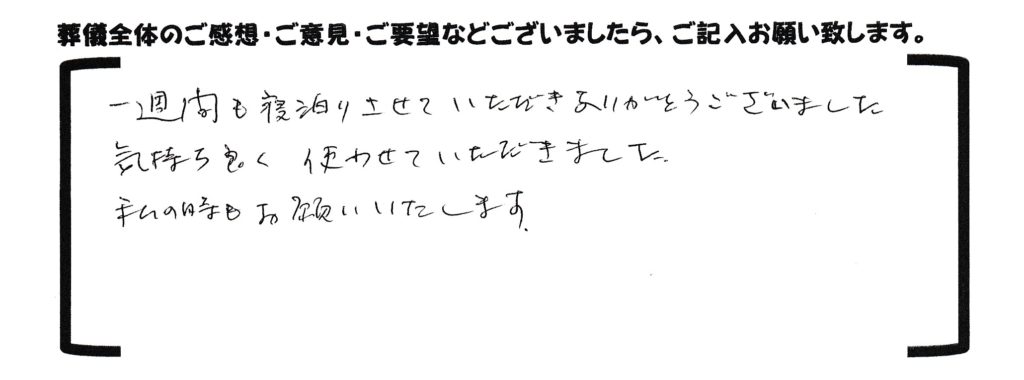 葬儀全体のご感想・ご意見・ご要望などございましたら、ご記入お願い致します。
一週間も寝泊りさせていただきありがとうございました
気持ち良く使わせていただきました。
私の時もお願いいたします。